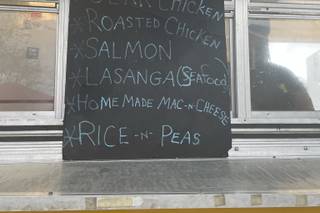 JERK CHICKEN
*ROASTED CHICKEN
*SALMON
*LASANGA (SEAFOOD)
*HOMEMADE MAC-N-CHEESE
*RICE -N- PEAS